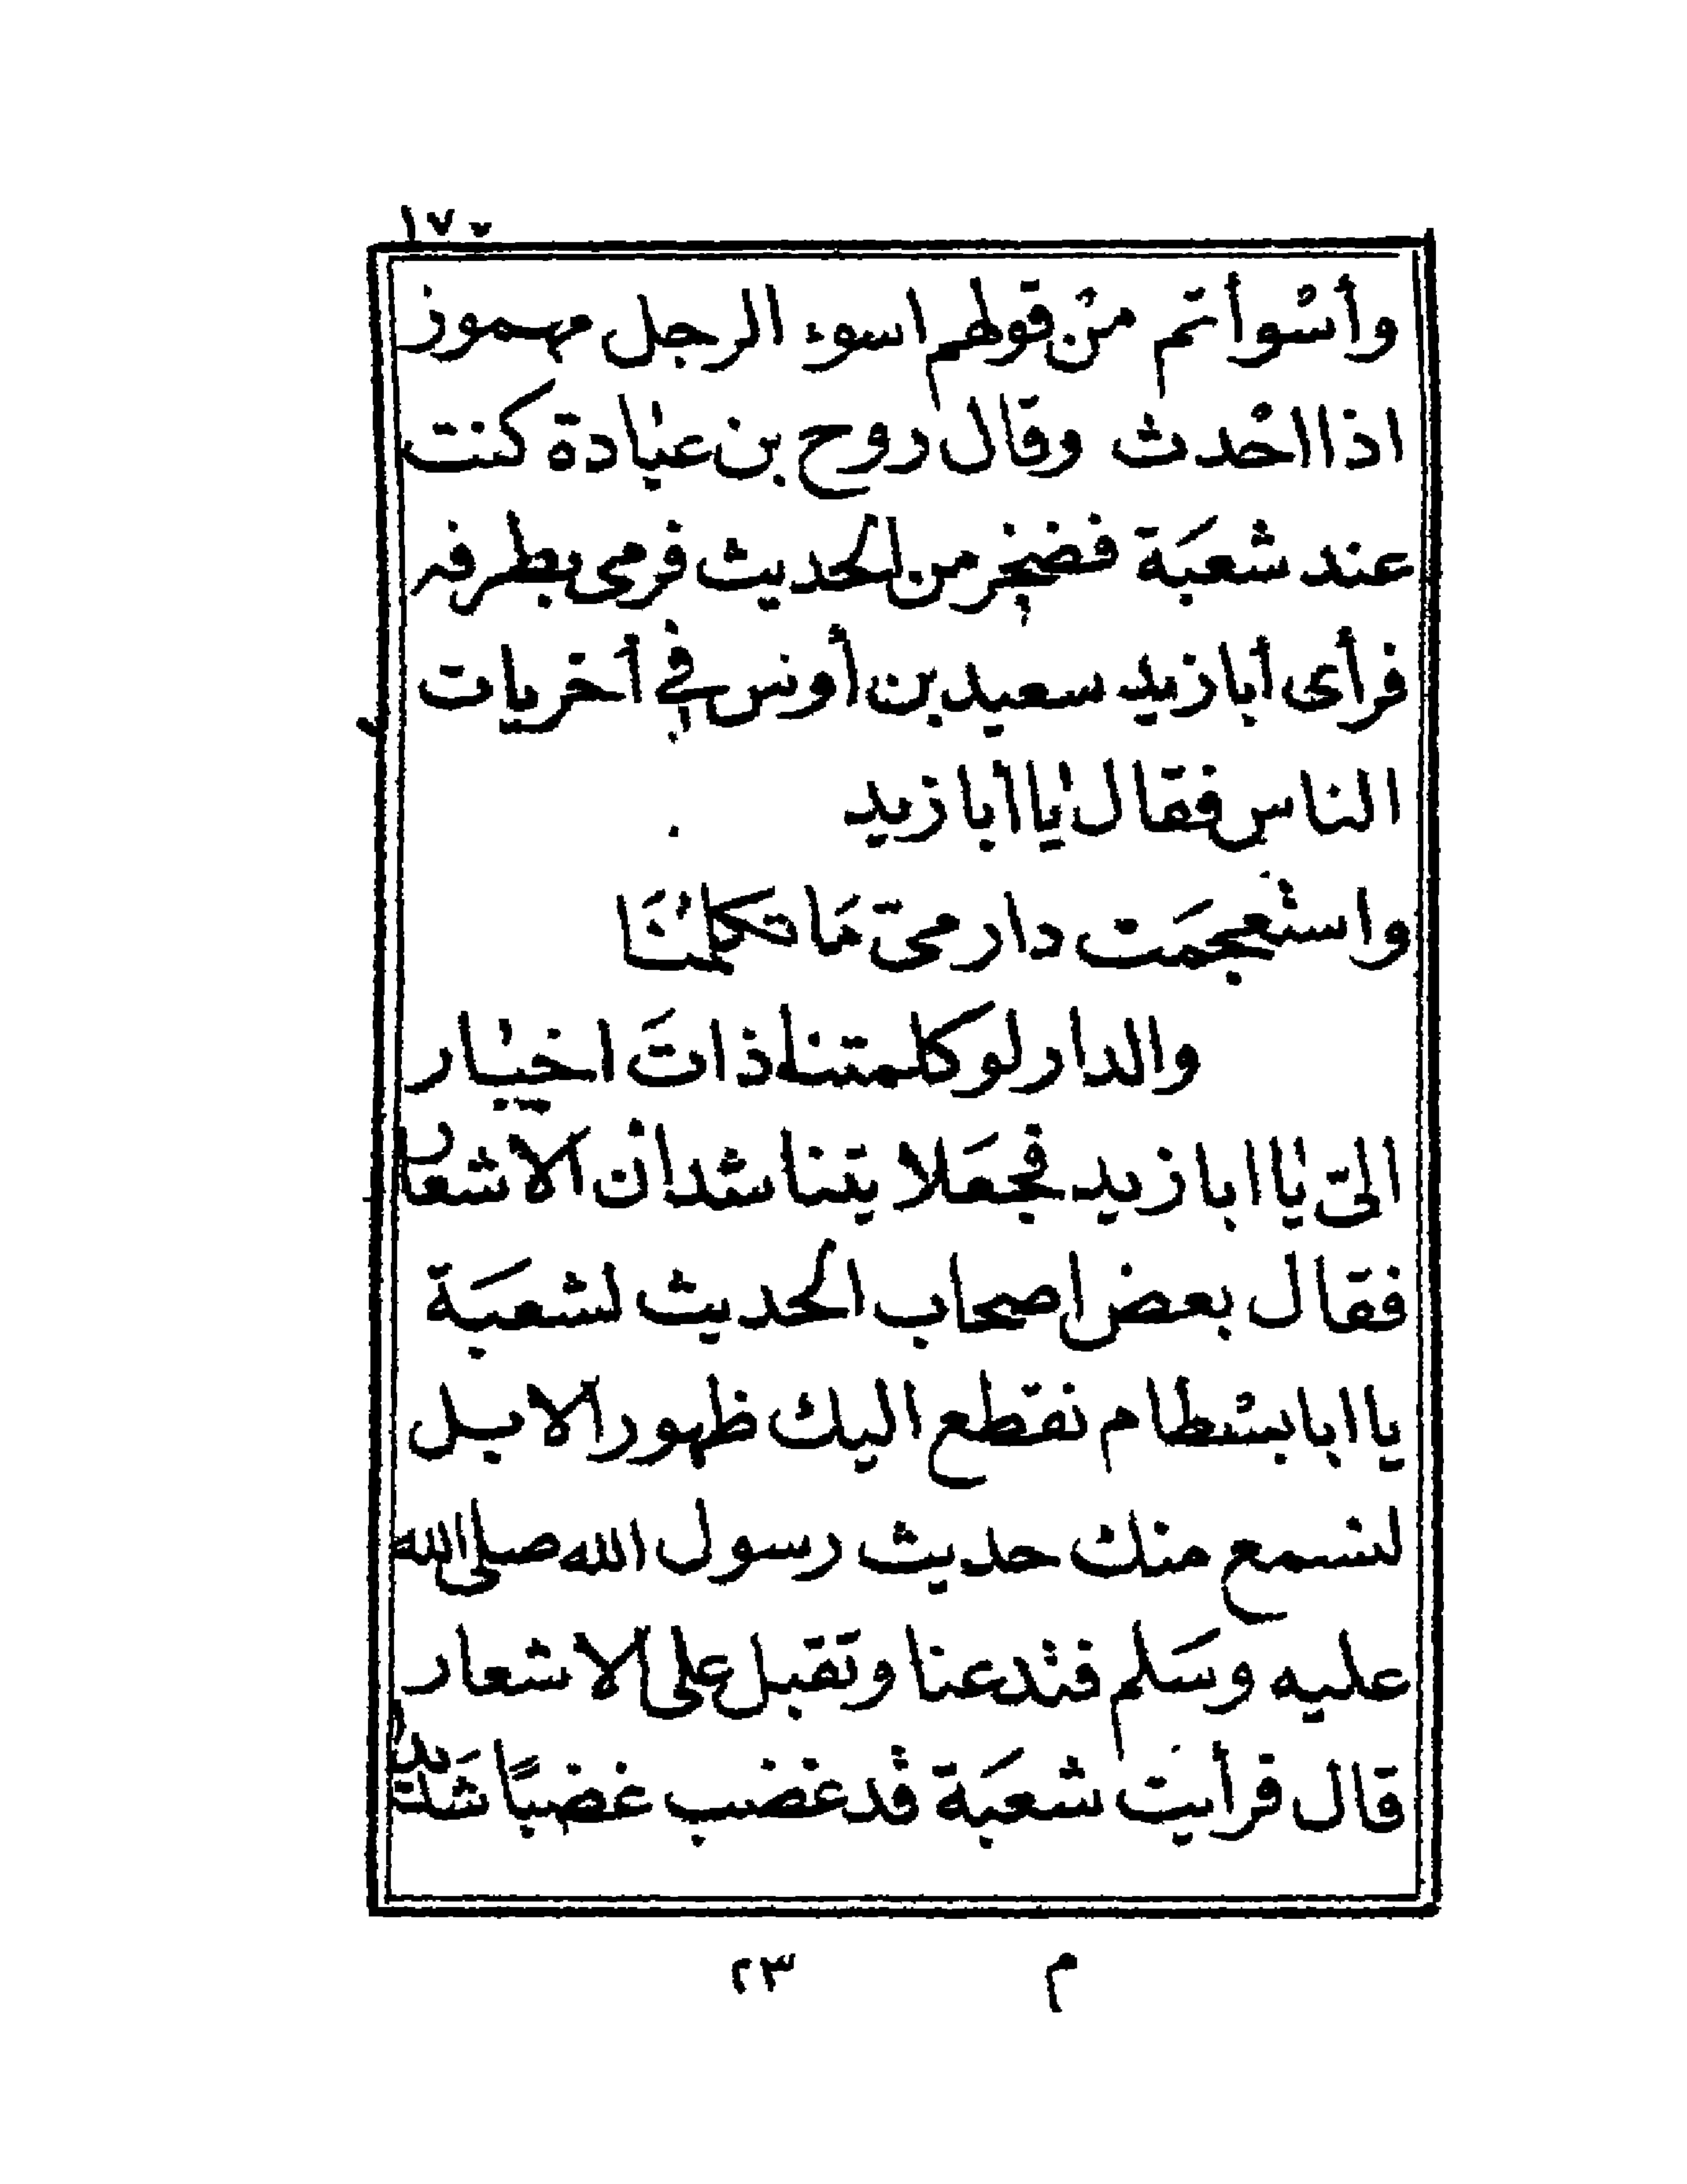 ١٧٧
وأسْوأتم منْ قولهم اسوء الرجل مهموز
اذا احْدث وقال روح بن عبادة كنت
عند شعبَة فضخر من الحديث فرمى بطرفه
فرأى أبا زيد سعيد بن أونس في أخريات
الناس فقال يا ابا زيد
واستْعجمَت دار ميّ مَا تكلمُنَا
والدار لو كلمتنا ذاتَ اخبار
اليّ يا ابا زيد فجعَلا يتناشدان الاشعار
فقال بعض اصحاب الحديث لشعبَة
يا ابا بسْطام نقطع اليك ظهور الابل
لنسمع منك حديث رسول الله صلى الله
عليه وسَلم فتْدعنا وتقبل على الاشعار
قال فرأيت شعبَة قد غضب غضبًا شَديدا
م ٢٣